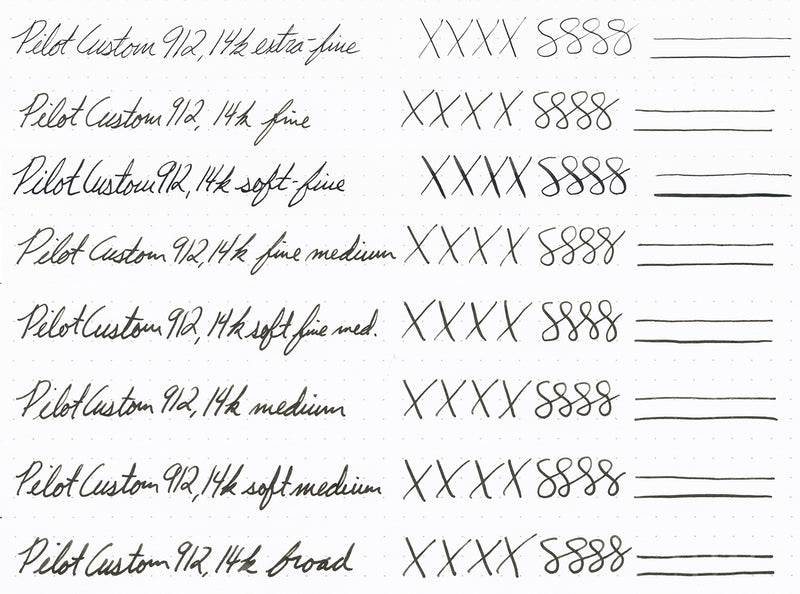 Pilot Custom 912, 14k extra-fine XXXX 8888
Pilot Custom 912, 14k fine XXXX 8888
Pilot Custom 912, 14k soft-fine XXXX 8888
Pilot Custom 912, 14k fine medium XXXX 8888
Pilot Custom 912, 14k soft fine med. XXXX 8888
Pilot Custom 912, 14k medium XXXX 8888
Pilot Custom 912, 14k soft medium XXXX 8888
Pilot Custom 912, 14k broad XXXX 8888